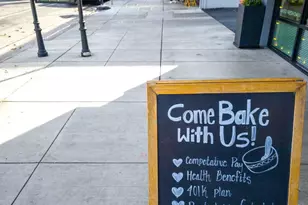 Come Bake
With Us!
Competative Pay
Health Benefits
401K plan